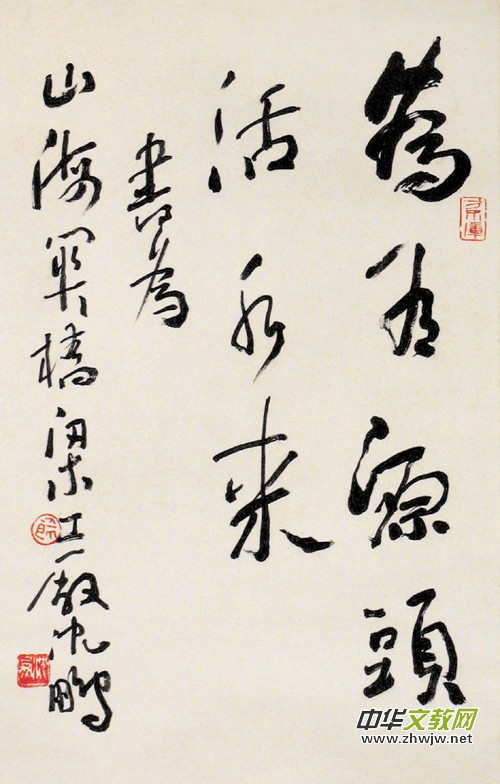 為有源頭
活水来
書為
山海関橋梁工廠沈鵬
中华文教网
www.zhwjw.net